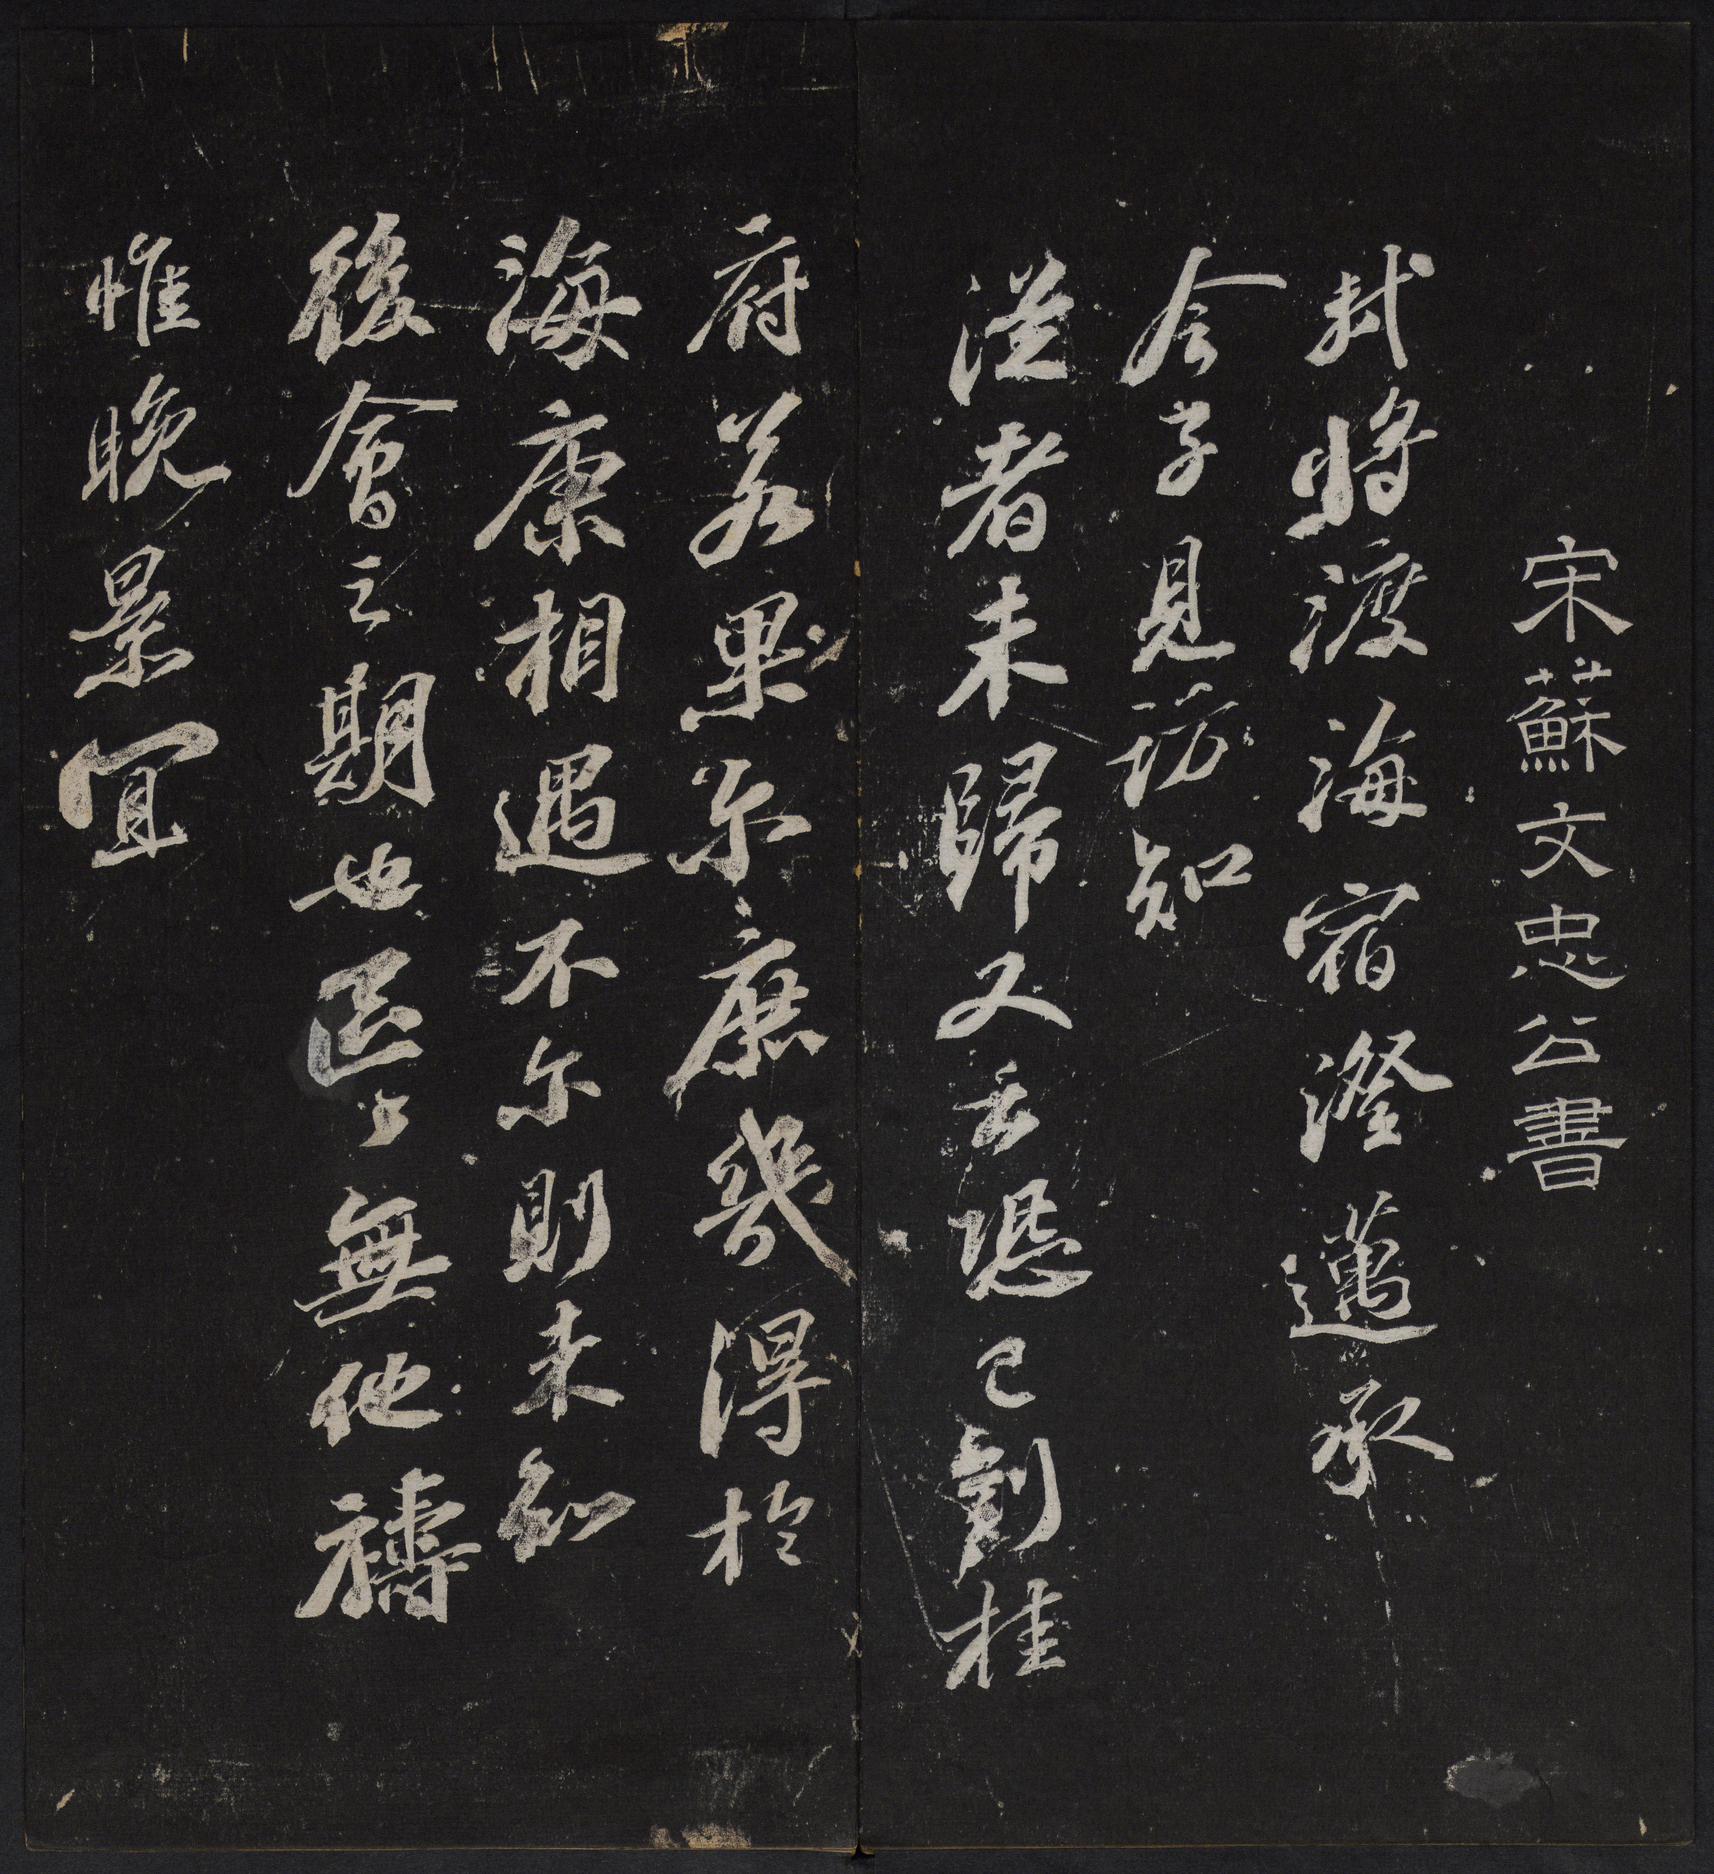 宋蘇文忠公書
軾將渡海宿澄邁承
令子見訪知
從者未歸又云恐已到桂
府若果尔庶幾得於
海康相遇不尔則未知
後會之期也區々無他禱
惟晚景宜